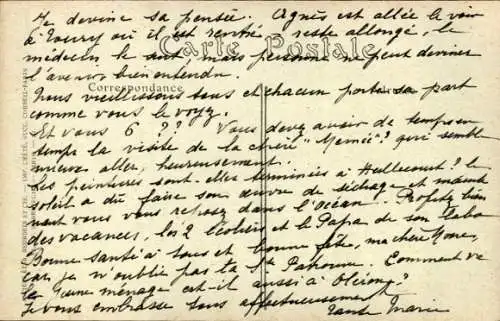 Je devine sa pensée. Agnès est allée le voir
à Toury où il est rentré, reste allongé, le
Carte Postale
médecin le dit, mais personne ne peut deviner
l'avenir bien entendu.
Correspondance
Nous vieillissons tous et chacun porte sa part
comme vous le voyez.
Et vous 6 ?? Vous devez avoir de temps en
temps la visite de la chère "Mémée" ? qui semble
mieux aller, heureusement.
Les peintures sont-elles terminées à ? le
soleil a dû faire son œuvre de séchage et mainte
nant vous vous reposez dans l'Océan... Profitez bien
des vacances, les 2 écoliers et le Papa de son labo
Bonne santé à tous et bonne fête, ma chère
car je n'oublie pas ta Ste. Comment va
le jeune ménage est-il aussi à Oléron ?
Je vous embrasse tous affectueusement
Tante Marie